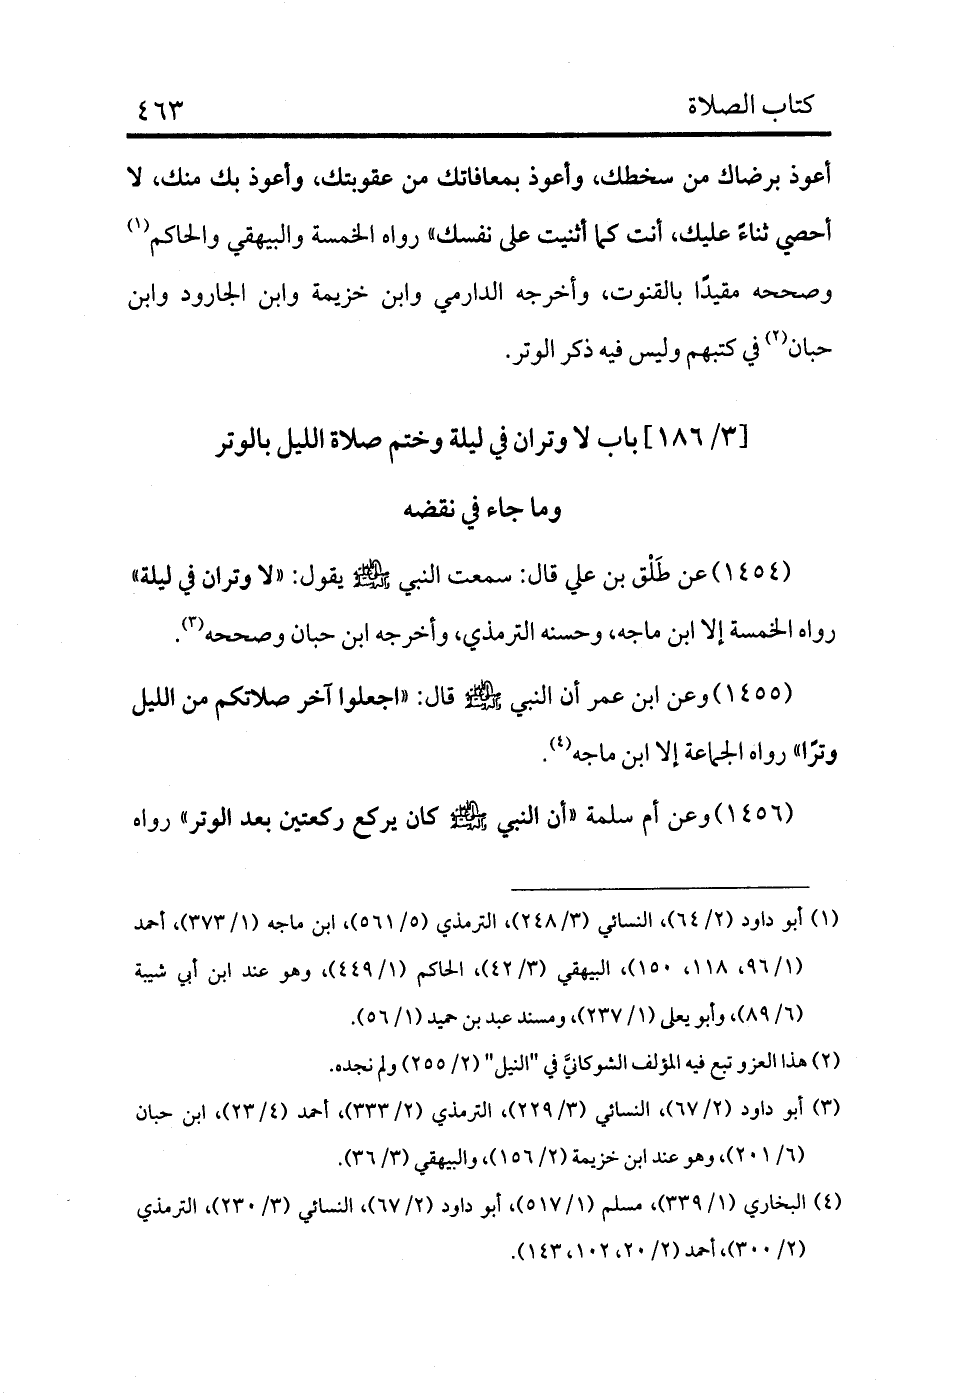 كتاب الصلاة ٤٦٣
أعوذ برضاك من سخطك، وأعوذ بمعافاتك من عقوبتك، وأعوذ بك منك، لا
أحصي ثناءً عليك، أنت كما أثنيت على نفسك» رواه الخمسة والبيهقي والحاكم(١)
وصححه مقيدًا بالقنوت، وأخرجه الدارمي وابن خزيمة وابن الجارود وابن
حبان(٢) في كتبهم وليس فيه ذكر الوتر.
[٣/ ١٨٦] باب لا وتران في ليلة وختم صلاة الليل بالوتر
وما جاء في نقضه
(١٤٥٤) عن طَلْق بن علي قال: سمعت النبي ﷺ يقول: «لا وتران في ليلة»
رواه الخمسة إلا ابن ماجه، وحسنه الترمذي، وأخرجه ابن حبان وصححه(٣).
(١٤٥٥) وعن ابن عمر أن النبي ﷺ قال: «اجعلوا آخر صلاتكم من الليل
وترًا» رواه الجماعة إلا ابن ماجه(٤).
(١٤٥٦) وعن أم سلمة «أن النبي ﷺ كان يركع ركعتين بعد الوتر» رواه
(١) أبو داود (٢/ ٦٤)، النسائي (٣/ ٢٤٨)، الترمذي (٥/ ٥٦١)، ابن ماجه (١/ ٣٧٣)، أحمد
(١/ ٩٦، ١١٨، ١٥٠)، البيهقي (٣/ ٤٢)، الحاكم (١/ ٤٤٩)، وهو عند ابن أبي شيبة
(٦/ ٨٩)، وأبو يعلى (١/ ٢٣٧)، ومسند عبد بن حميد (١/ ٥٦).
(٢) هذا العزو تبع فيه المؤلف الشوكانيَّ في "النيل" (٢/ ٢٥٥) ولم نجده.
(٣) أبو داود (٢/ ٦٧)، النسائي (٣/ ٢٢٩)، الترمذي (٢/ ٣٣٣)، أحمد (٤/ ٢٣)، ابن حبان
(٦/ ٢٠١)، وهو عند ابن خزيمة (٢/ ١٥٦)، والبيهقي (٣/ ٣٦).
(٤) البخاري (١/ ٣٣٩)، مسلم (١/ ٥١٧)، أبو داود (٢/ ٦٧)، النسائي (٣/ ٢٣٠)، الترمذي
(٢/ ٣٠٠)، أحمد (٢/ ٢٠، ١٠٢، ١٤٣).